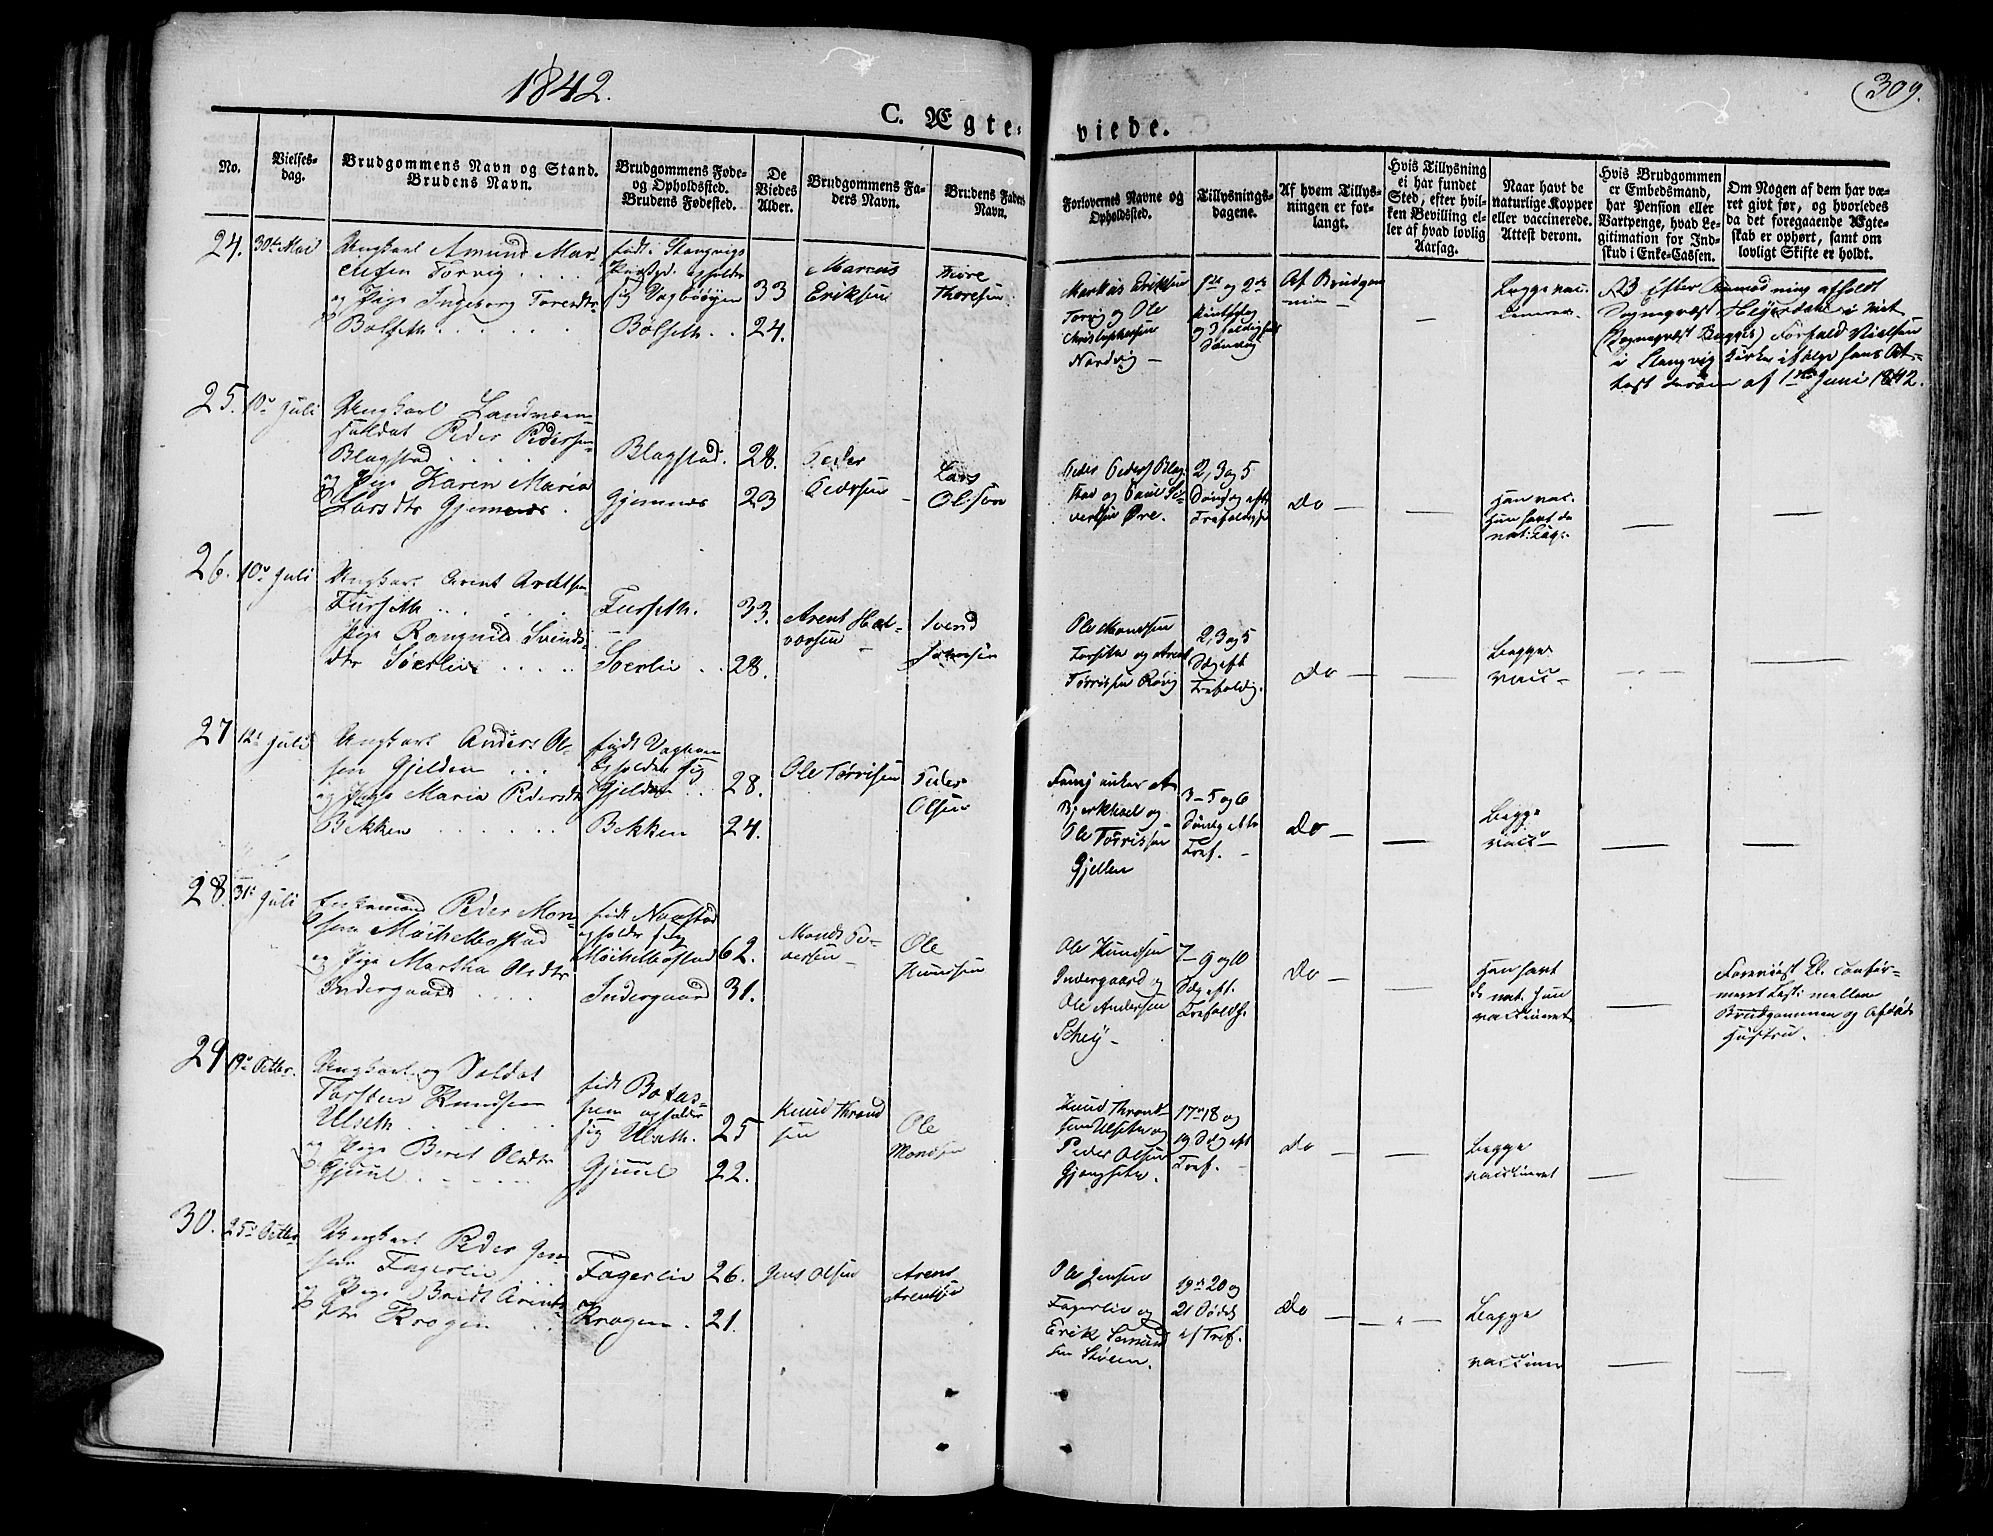 1842.
309.
C. Ægte-
viede.
No.
Vielses-
dag.
Brudgommens Navn og Stand.
Brudens Navn.
Brudgommens Føde-
og Opholdssted.
Brudens Fødested.
De
Viedes
Alder.
Brudgommens Fa-
ders Navn.
Brudens Faders
Navn.
Forlovernes Navne og
Opholdssted.
Tillysnings-
dagene.
Af hvem Tillys-
ningen er for-
langt.
Hvis Tillysning
ei har fundet
Sted, efter hvil-
ken Bevilling el-
ler af hvad lovlig
Aarsag.
Naar havt de
naturlige Kopper
eller vaccinerede.
Attest derom.
Hvis Brudgommen
er Embedsmand,
har Pension eller
Vartpenge, hvad Le-
gitimation for Ind-
skud i Enke-Cassen.
Om Nogen af dem har væ-
ret givt før, og hvorledes
da det foregaaende Ægte-
skab er ophørt, samt om
lovligt Skifte er holdt.
24. 30te Mai
Ungkarl Amund Mar-
cusen Torvig
og Pige Ingeborg Toresdtr
Bolseth
født i Stangvigs
Præstgd. opholder
sig Vagbøøyen
Bolseth
33
24.
Marcus
Eriksen
Thore
Thoresen
Markus Eriksen
Torvig og Ole
Christophersen
Nordvig
1ste og 2den
Pintsedag
og 3foldigheds
Søndag
Af Brudgom-
men
Begge vac-
cineret
NB Efter Anmodning afholdt
Sognepræst Heyerdahl i mit
(Sognepræst Bugges) Forfald Vielsen
i Stangvig Kirke ifølge hans At-
test derom af 1ste Juni 1842.
25. 10de Juli
Ungkarl Landværn-
soldat Peder Pedersen
Blagstad
og Pige Karen Maria
Larsdtr Gjemnæs
Blagstad.
Gjemnæs
28.
23
Peder
Pedersen
Lars
Olsen
Peder Peders. Blag-
stad og Paul Si-
vertsen Øre.
2, 3 og 5
Søndag eft
Trefoldigh
Do
Han vac.
Hun havt de
nat: Kop:
26. 10de Juli
Ungkarl Arent Arentsen
Furseth
Pige Rangnild Svends-
dtr Søerlie
Furseth.
Soerlie
33.
28.
Arent Hal-
vorsen
Svend
Johnsen
Ole Mondsen
Furseth og Arent
Tørrissen Røvig
2, 3 og 5
Sdg eft
Trefoldig.
Do
Begge
vac
27 12te Juli
Ungkarl Anders Ol-
sen Gjelden
og Pige Maria Pedersdtr
Bekken
født Vagbøen
opholder sig
Gjelden
Bekken
28.
24.
Ole Tørrisen
Peder
Olsen
Bjerkhoel og
Ole Tørrissen
Gjelden
3-5 og 6
Søndg efter
Tref.
Do
Begge
vacc
28. 31te Juli
Enkemand Peder Mon-
sen Møihelbostad
og Pige Martha Olsdtr
Indergaard
født Naastad
opholder sig
Møihelbostad
Indergaard
62.
31.
Monds Pe-
dersen
Ole
Knudsen
Ole Knudsen
Indergaard og
Ole Andersen
Schey
7-9 og 10
Sdg eft.
Trefoldh.
Do
Han havt
de nat. Hun
vaccineret
Forevist Bl. confir-
meret Test: mellem
Brudgommen og Afdøde
Hustru.
29 19de Octbr.
Ungkarl og Soldat
Torsten Knudsen
Ulseth
og Pige Beret Olsdtr
Gjuul
født Botus-
hem opholder
sig Ulseth.
Gjuul
25
22.
Knud Thrond
sen
Ole
Mondsen
Knud Thrond-
sen Ulseth og
Peder Olsen
Gjengseth.
17-18 og
19 Sdg eft
Tref.
Do
Begge
vaccineret
30. 25de Octbr
Ungkarl Peder Jen-
sen Fagerlie
og Pige Bridt Arents-
dtr Krogen
Fagerlie
og
Krogen.
26.
21.
Jens Olsen
Arent
Arentsen
Ole Jensen
Fagerlie og
Erik Semund
sen Støen.
19de 20 og
21 Sødag
ef Tref.
Do
Begge
vaccineret